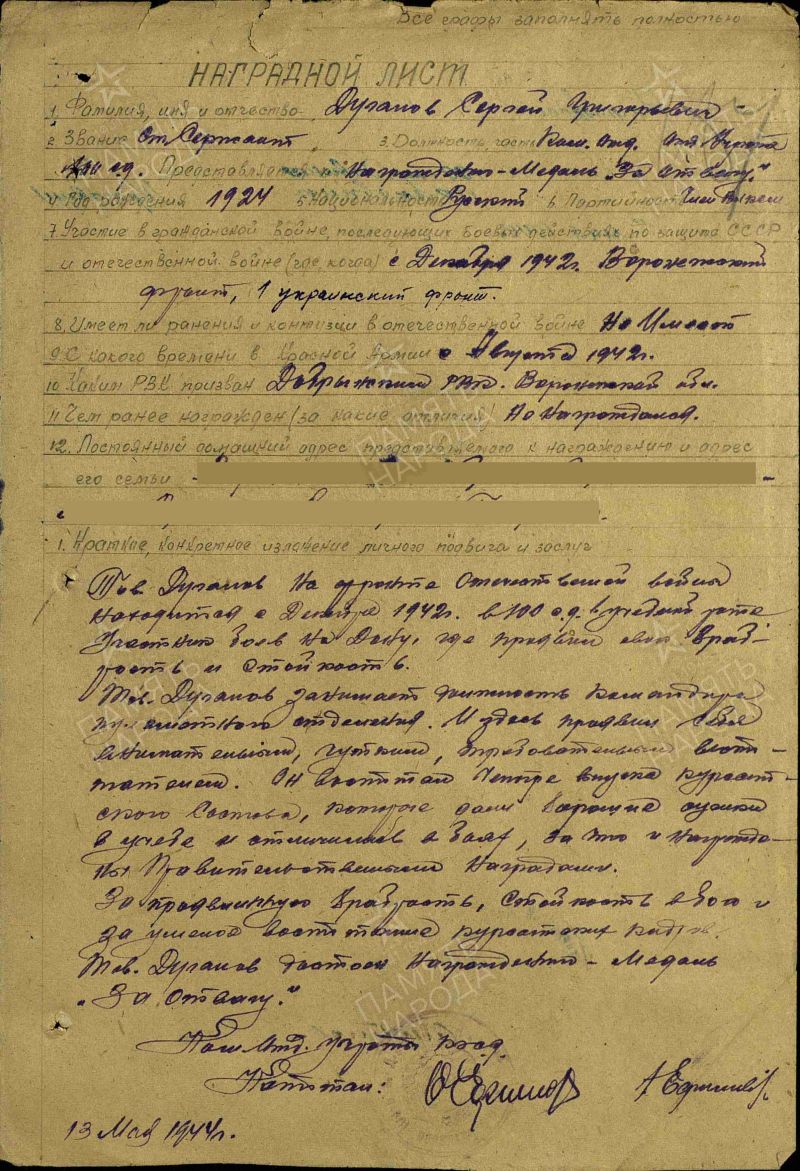 Все графы заполнять полностью
НАГРАДНОЙ ЛИСТ
1. Фамилия, имя и отчество Дуганов Сергей Григорьевич
2. Звание Ст. Сержант, 3. Должность, часть Ком. Отд. Отд. Уч. роты
100 сд. Представляется к Награждению - Медаль "За отвагу."
4. Год рождения 1924 5. Национальность Русский 6. Партийность Член ВЛКСМ
7. Участие в гражданской войне, последующих боевых действиях по защите СССР
и отечественной войне (где когда) с Декабря 1942г. Воронежский
фронт, 1 украинский фронт.
8. Имеет ли ранения и контузии в отечественной войне Не Имеет
9. С какого времени в Красной Армии с Августа 1942г.
10. Каким РВК призван РВК. Воронежской обл.
11. Чем ранее награжден (за какие отличия) Не Награждался.
12. Постоянный домашний адрес представляемого к награждению и адрес
его семьи -
1. Краткое, конкретное изложение личного подвига и заслуг
Тов Дуганов на фронте Отечественной войны
находится с Декабря 1942г. в 100 с.д. в учебной роте
Участник боев на Дону, где проявил свою храб-
рость и стойкость.
Тов. Дуганов занимает должность командира
отделения. И здесь проявил себя
внимательным, чутким, требовательным воспи-
тателем. Он воспитал Четыре выпуска курсант-
ского Состава, которые дали хорошие оценки
в учебе и отличились в боях, за что и награжде-
ны Правительственными Наградами.
За проявленную храбрость, стойкость в бою и
за умелое воспитание курсантских кадров
Тов. Дуганов достоин Награждения - Медаль
"За отвагу."
Ком. Отд. Уч. роты 100 сд.
Капитан:
13 Мая 1944г.
ПАМЯТЬ НАРОДА